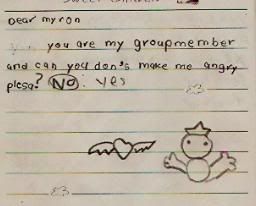 Dear myron
you are my groupmember
and can you don's make me angry
plesa? No : yes